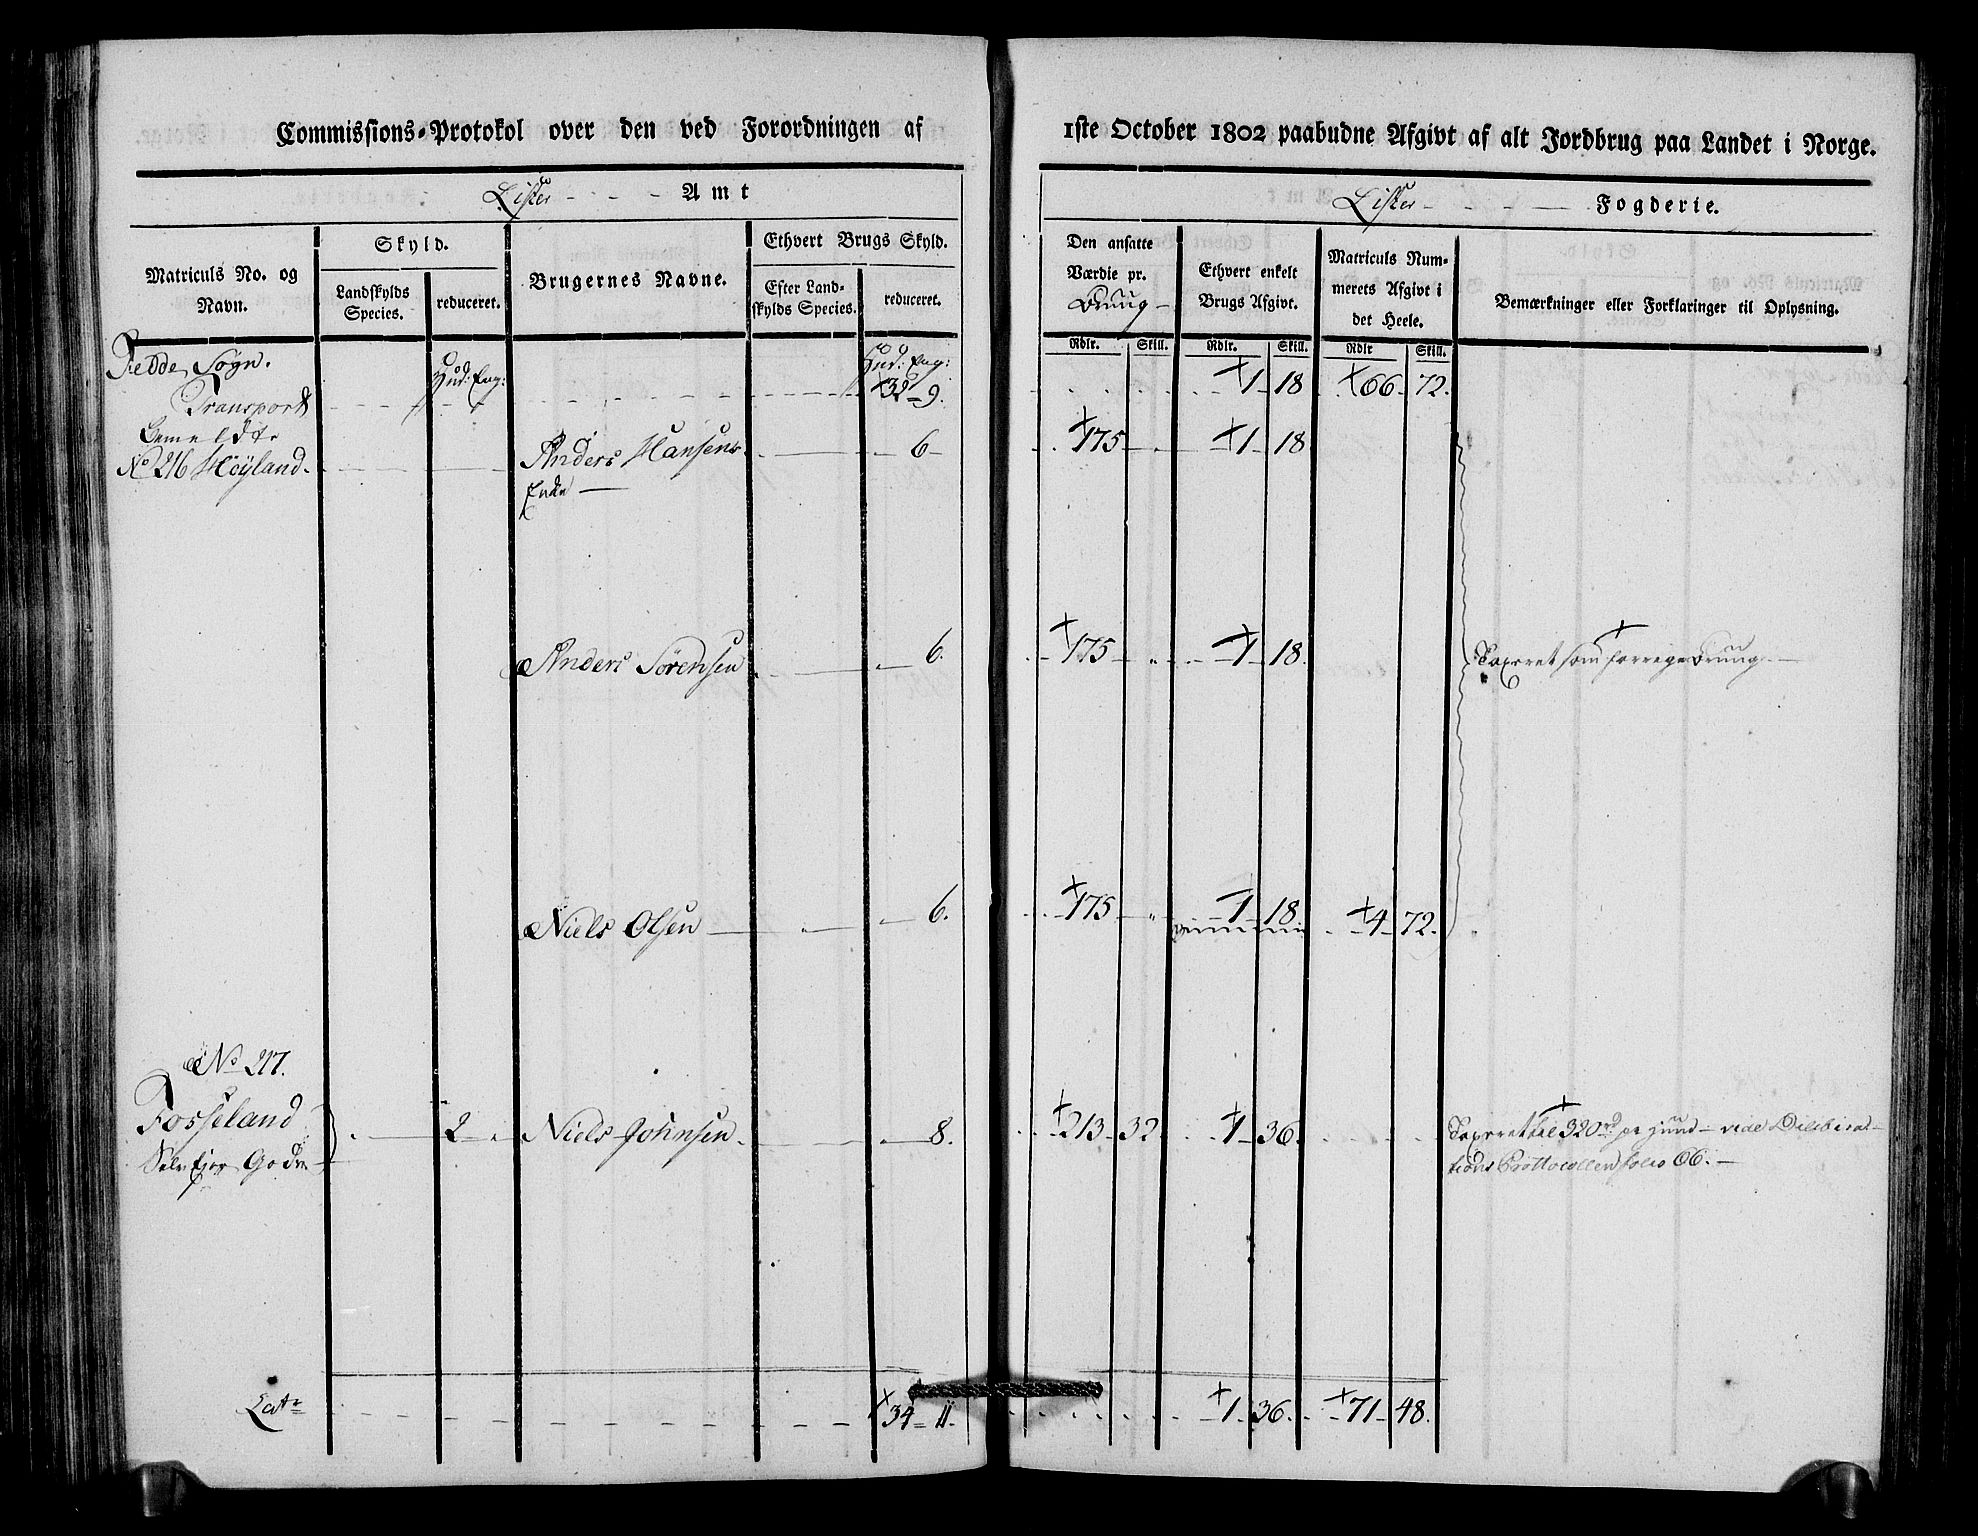 Commissions-Protokol over den ved Forordningen af
1ste October 1802 paabudne Afgivt af alt Jordbrug paa Landet i Norge.
Lister Amt
Lister Fogderie.
Matriculs No. og Navn.
Skyld.
Landskylds Species.
reduceret.
Brugernes Navne.
Ethvert Brugs Skyld.
Efter Landskylds Species.
reduceret.
Den ansatte Værdie pr. Bruug
Ethvert enkelt Brugs Afgivt.
Matriculs Nummerets Afgivt i det Heele.
Bemærkninger eller Forklaringer til Oplysning.
Rdlr. Skill. Rdlr. Skill. Rdlr Skill.
Fedde Sogn.
Hud: Eng:
Hud: Eng:
Transport 32 9. 1 18 66 72.
Bemeldte
No 216 Höyland. Anders Hansens 6 175 1 18
Enke
Anders Sörensen 6. 175 1 18. Taxeret som forrige Bruug.
Niels Olsen 6. 175 1 18 4 72.
No 217.
Fosseland 2 Niels Johnsen 8. 213 32 1 36. Taxeret til 320 rd pr Huud vide Delibera-
Selvejer Gods tions Prottocollen folio 66.
Lats 34 11. 1 36. 71 48.